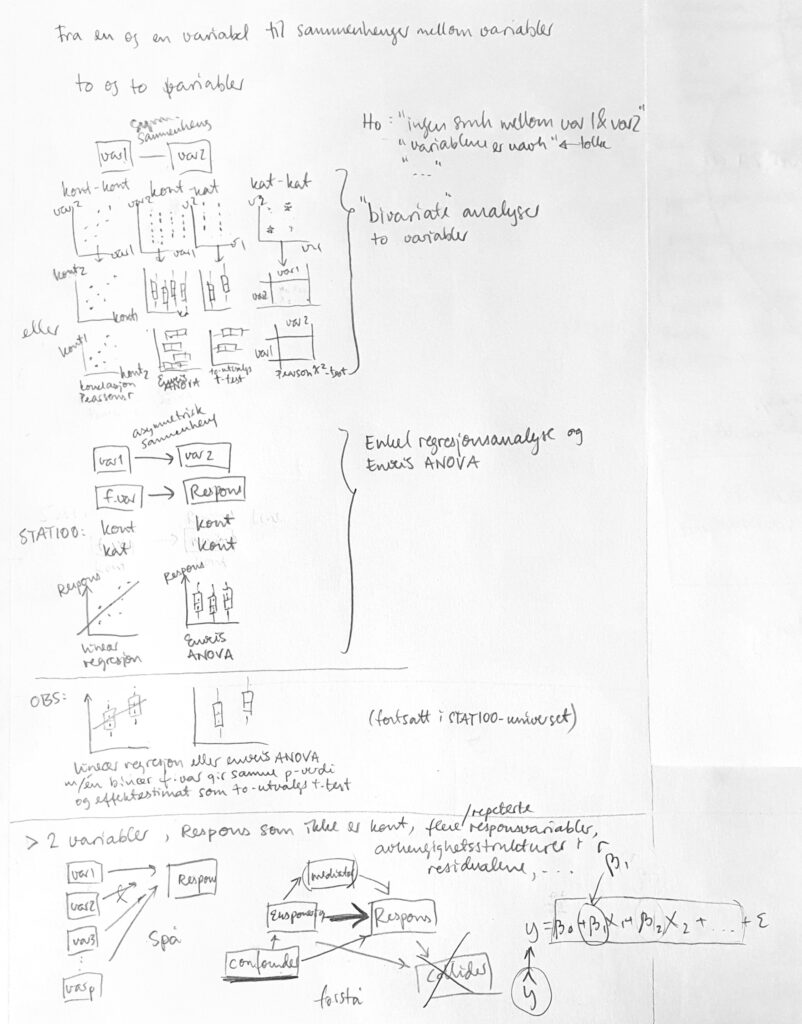 Fra en og en variabel til sammenhenger mellom variabler
to og to variabler
sammenheng
var1 var2
H0: "ingen smh mellom var 1 & var 2"
"variablene er uavh" ← tolke
"..."
kont-kont kont-kat kat-kat
var2 var2 v2 v2
var1 var1 v1 var1
"bivariate" analyser
to variabler
kont2 var1
var2
kont1
eller
kont1 var2
var1
kont2
korrelasjon Enveis to-utvalgs Pearson χ²-test
Pearsons r ANOVA t-test
asymmetrisk
sammenheng
var1 → var2
f.var → Respons
Enkel regresjonsanalyse og
Enveis ANOVA
STAT100: kont kont
kat kont
Respons Respons
lineær Enveis
regresjon ANOVA
OBS:
(fortsatt i STAT100-universet)
lineær regresjon eller enveis ANOVA
m/én binær f.var gir samme p-verdi
og effektestimat som to-utvalgs t-test
> 2 variabler, Respons som ikke er kont, flere/repeterte responsvariabler,
avhengighetsstrukturer i
residualene, ...
var1 Respons
var2
var3
varp
Spå
mediator
Eksponering → Respons
confounder
collider
forstå
β1
y = β0 + β1X1 + β2X2 + ... + ε
y